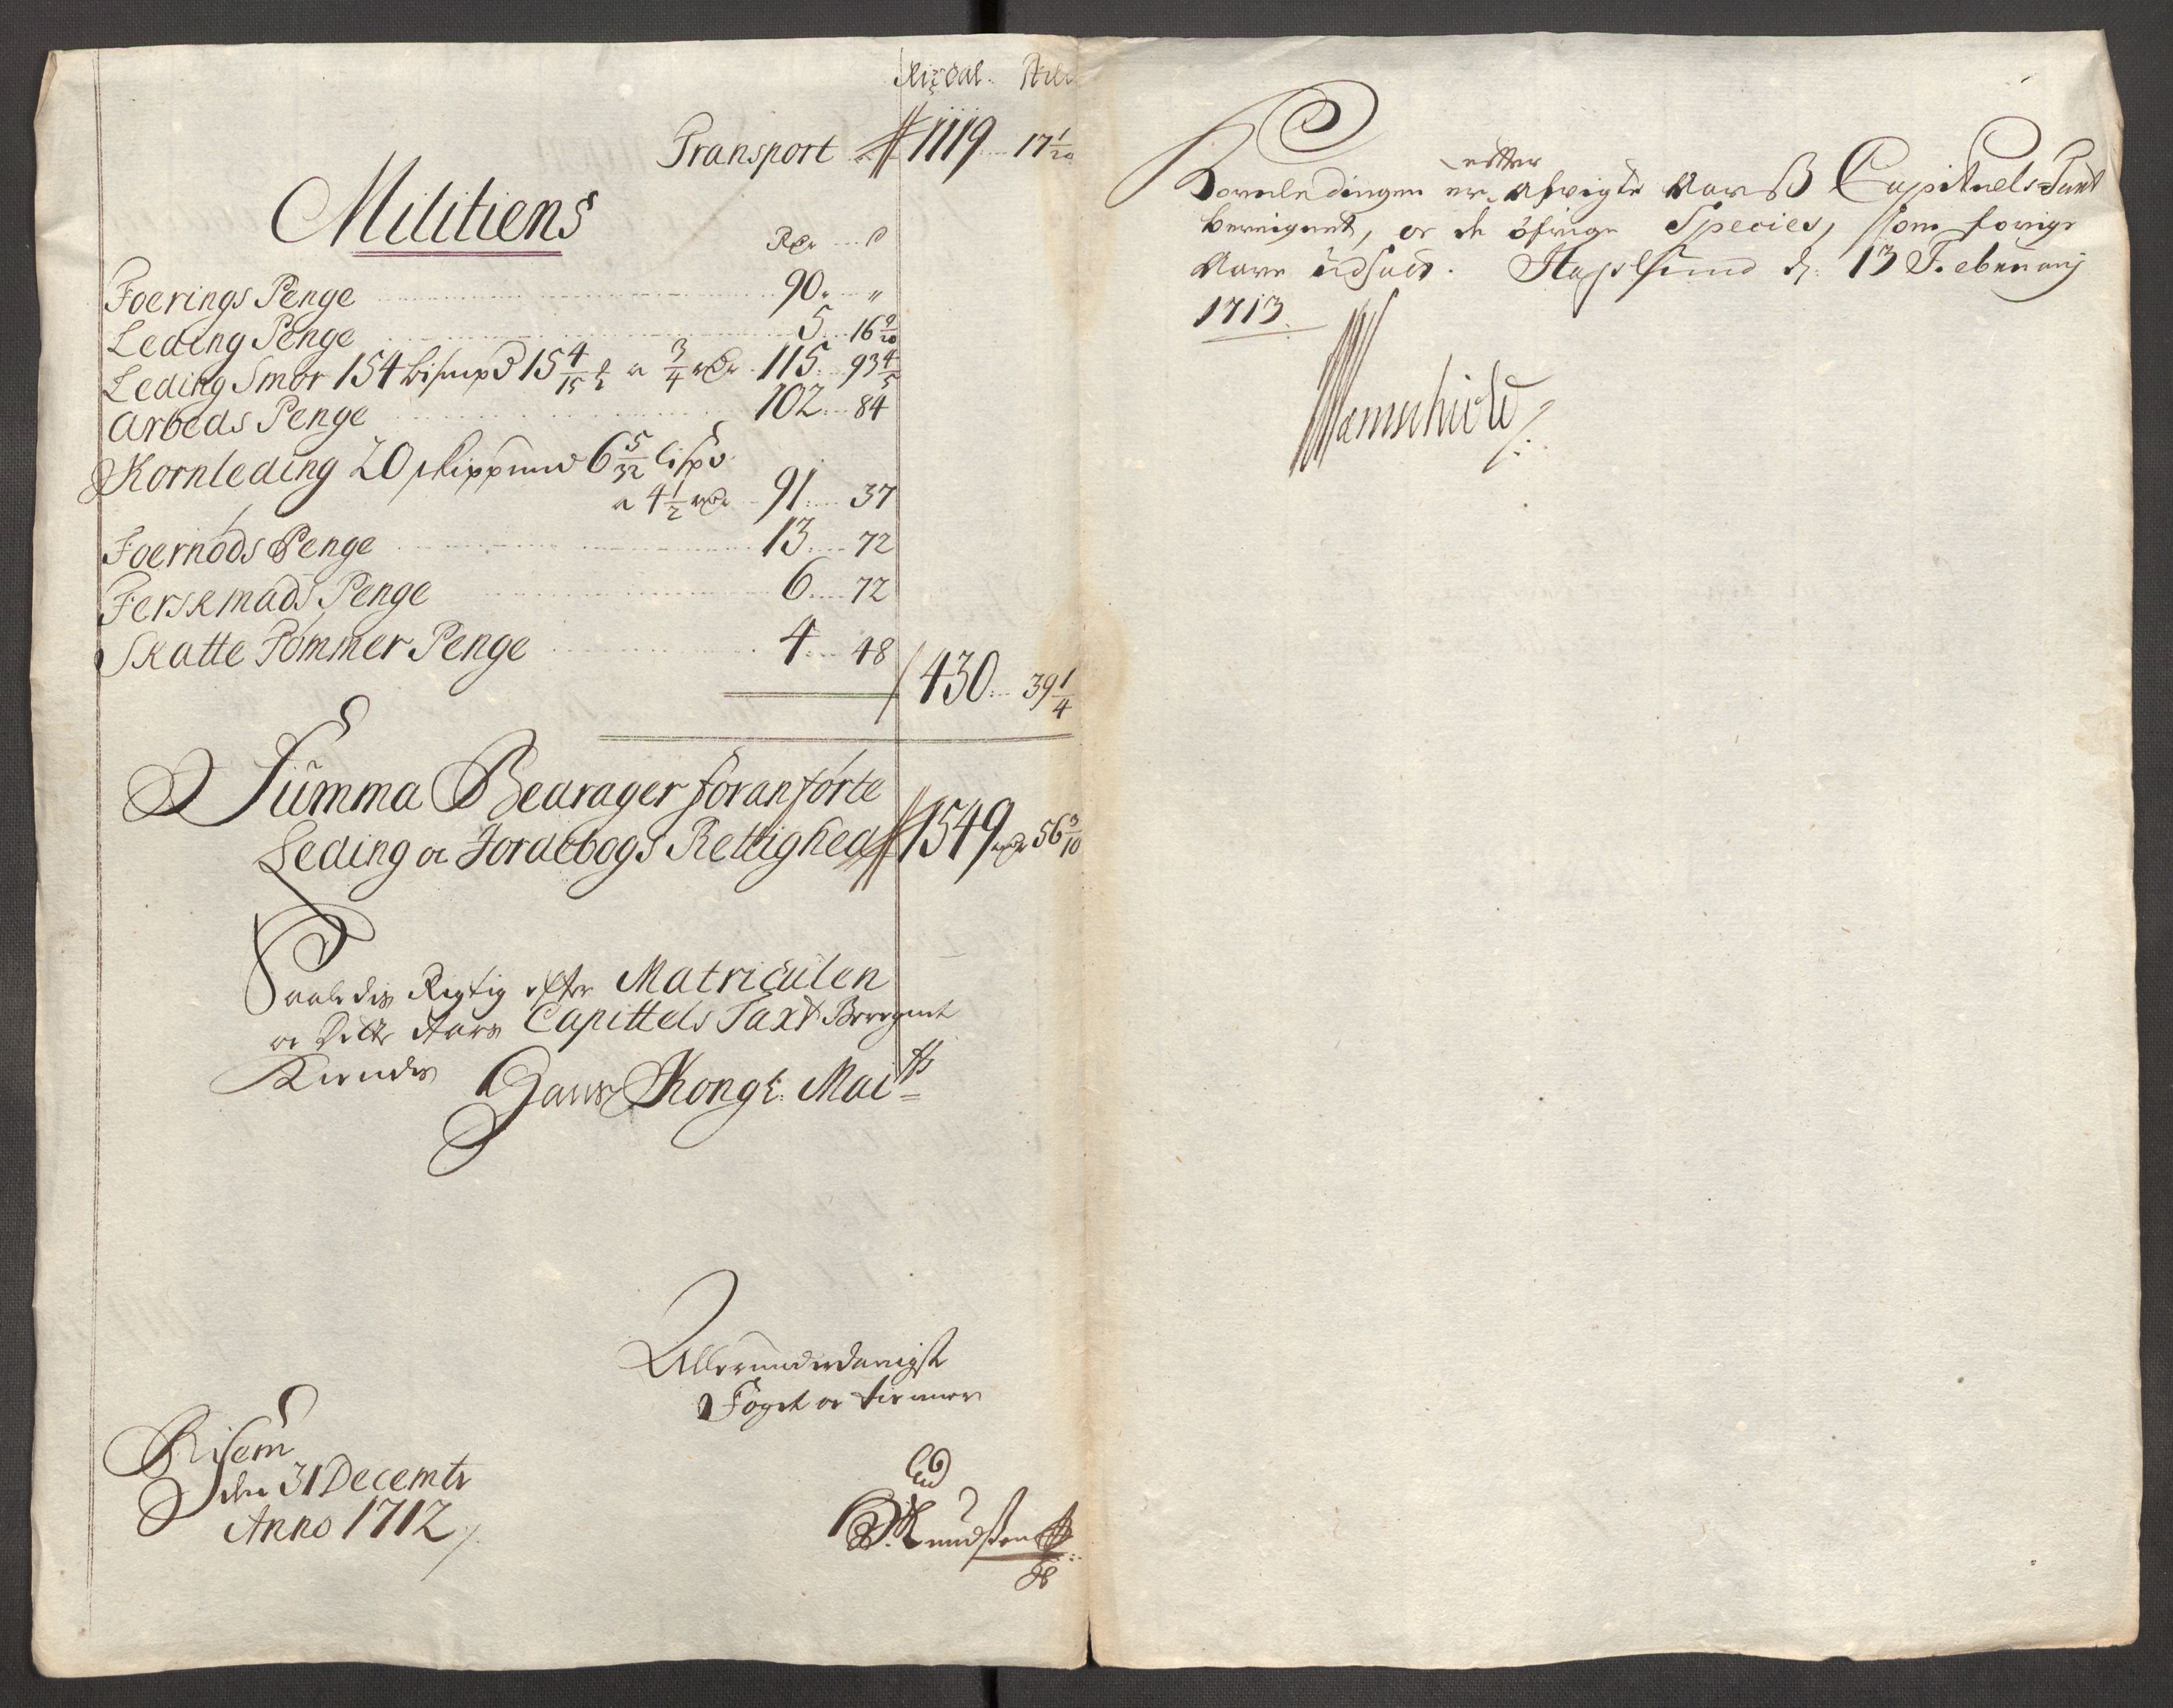 Rixdal. Skl
Transport 1119 17 1/20
Militiens
Rdr ß
Foerings Penge 90. "
Leding Penge 5. 16 9/20
Leding Smør 154 bismpd 15 4/15 a 3/4 rdr 115. 93 4/5
Arbeds Penge 102. 84
Kornleding 20 skippund 6 5/32 lispd
a 4 1/2 rdr 91. 37
Foernøds Penge 13. 72
Ferskmads Penge 6. 72
Skatte Tømmer Penge 4. 48
430. 39 1/4
Summa Bedrager foranførte
Leding oc Jordebogs Rettighed 1549 rdr 56 3/10
Saaledis Rigtig efter Matriculen
oc dette Aars Capittels Taxt Beregnet
Kiendis
Hans Kongl. Mai ts
Allerunderdanigste
Foget oc tienner
Risem
den 31 Decembr
Anno 1712
Knudsen
Kornledingen er efter afvigte Aarß Capituels Taxt
bereignet, oc de öfrige Species, som forige
Aare udført. Stapelsund d. 13 February
1713.